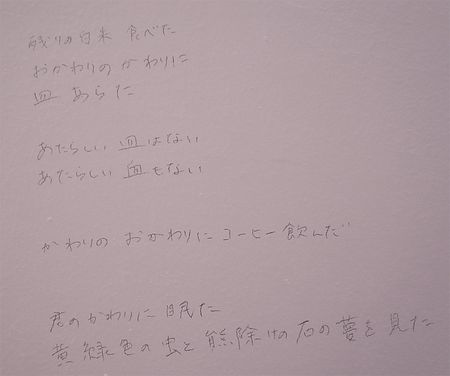 残りの白米 食べた
おかわりのかわりに
皿 あらった
あたらしい 皿はない
あたらしい 血もない
かわりの おかわりに コーヒー飲んだ
君のかわりに 眠た
黄緑色の虫と熊除けの石の夢を見た